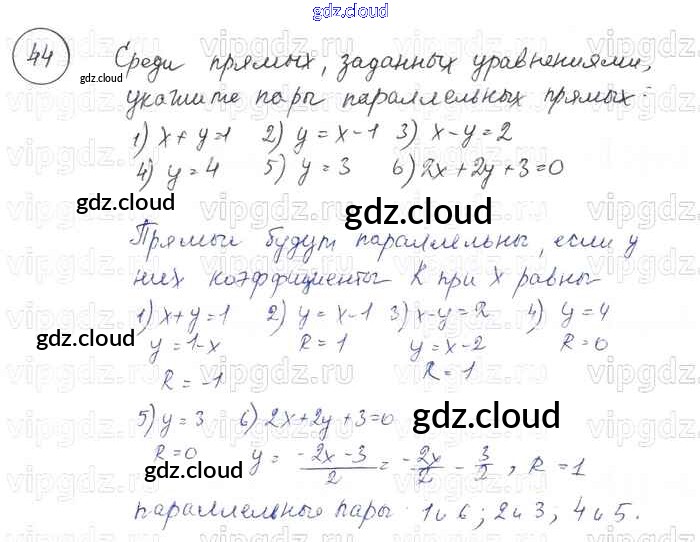 gdz.cloud
44 Среди прямых, заданных уравнениями,
укажите пары параллельных прямых:
1) x + y = 1 2) y = x - 1 3) x - y = 2
4) y = 4 5) y = 3 6) 2x + 2y + 3 = 0
Прямые будут параллельны, если у
них коэффициенты k при x равны
1) x + y = 1 2) y = x - 1 3) x - y = 2 4) y = 4
y = 1 - x k = 1 y = x - 2 k = 0
k = -1 k = 1
5) y = 3 6) 2x + 2y + 3 = 0
k = 0 y = (-2x - 3)/2 = -2x/2 - 3/2, k = 1
параллельные пары 1 и 6; 2 и 3; 4 и 5.
gdz.cloud
gdz.cloud
gdz.cloud
gdz.cloud
gdz.cloud
gdz.cloud
gdz.cloud
gdz.cloud